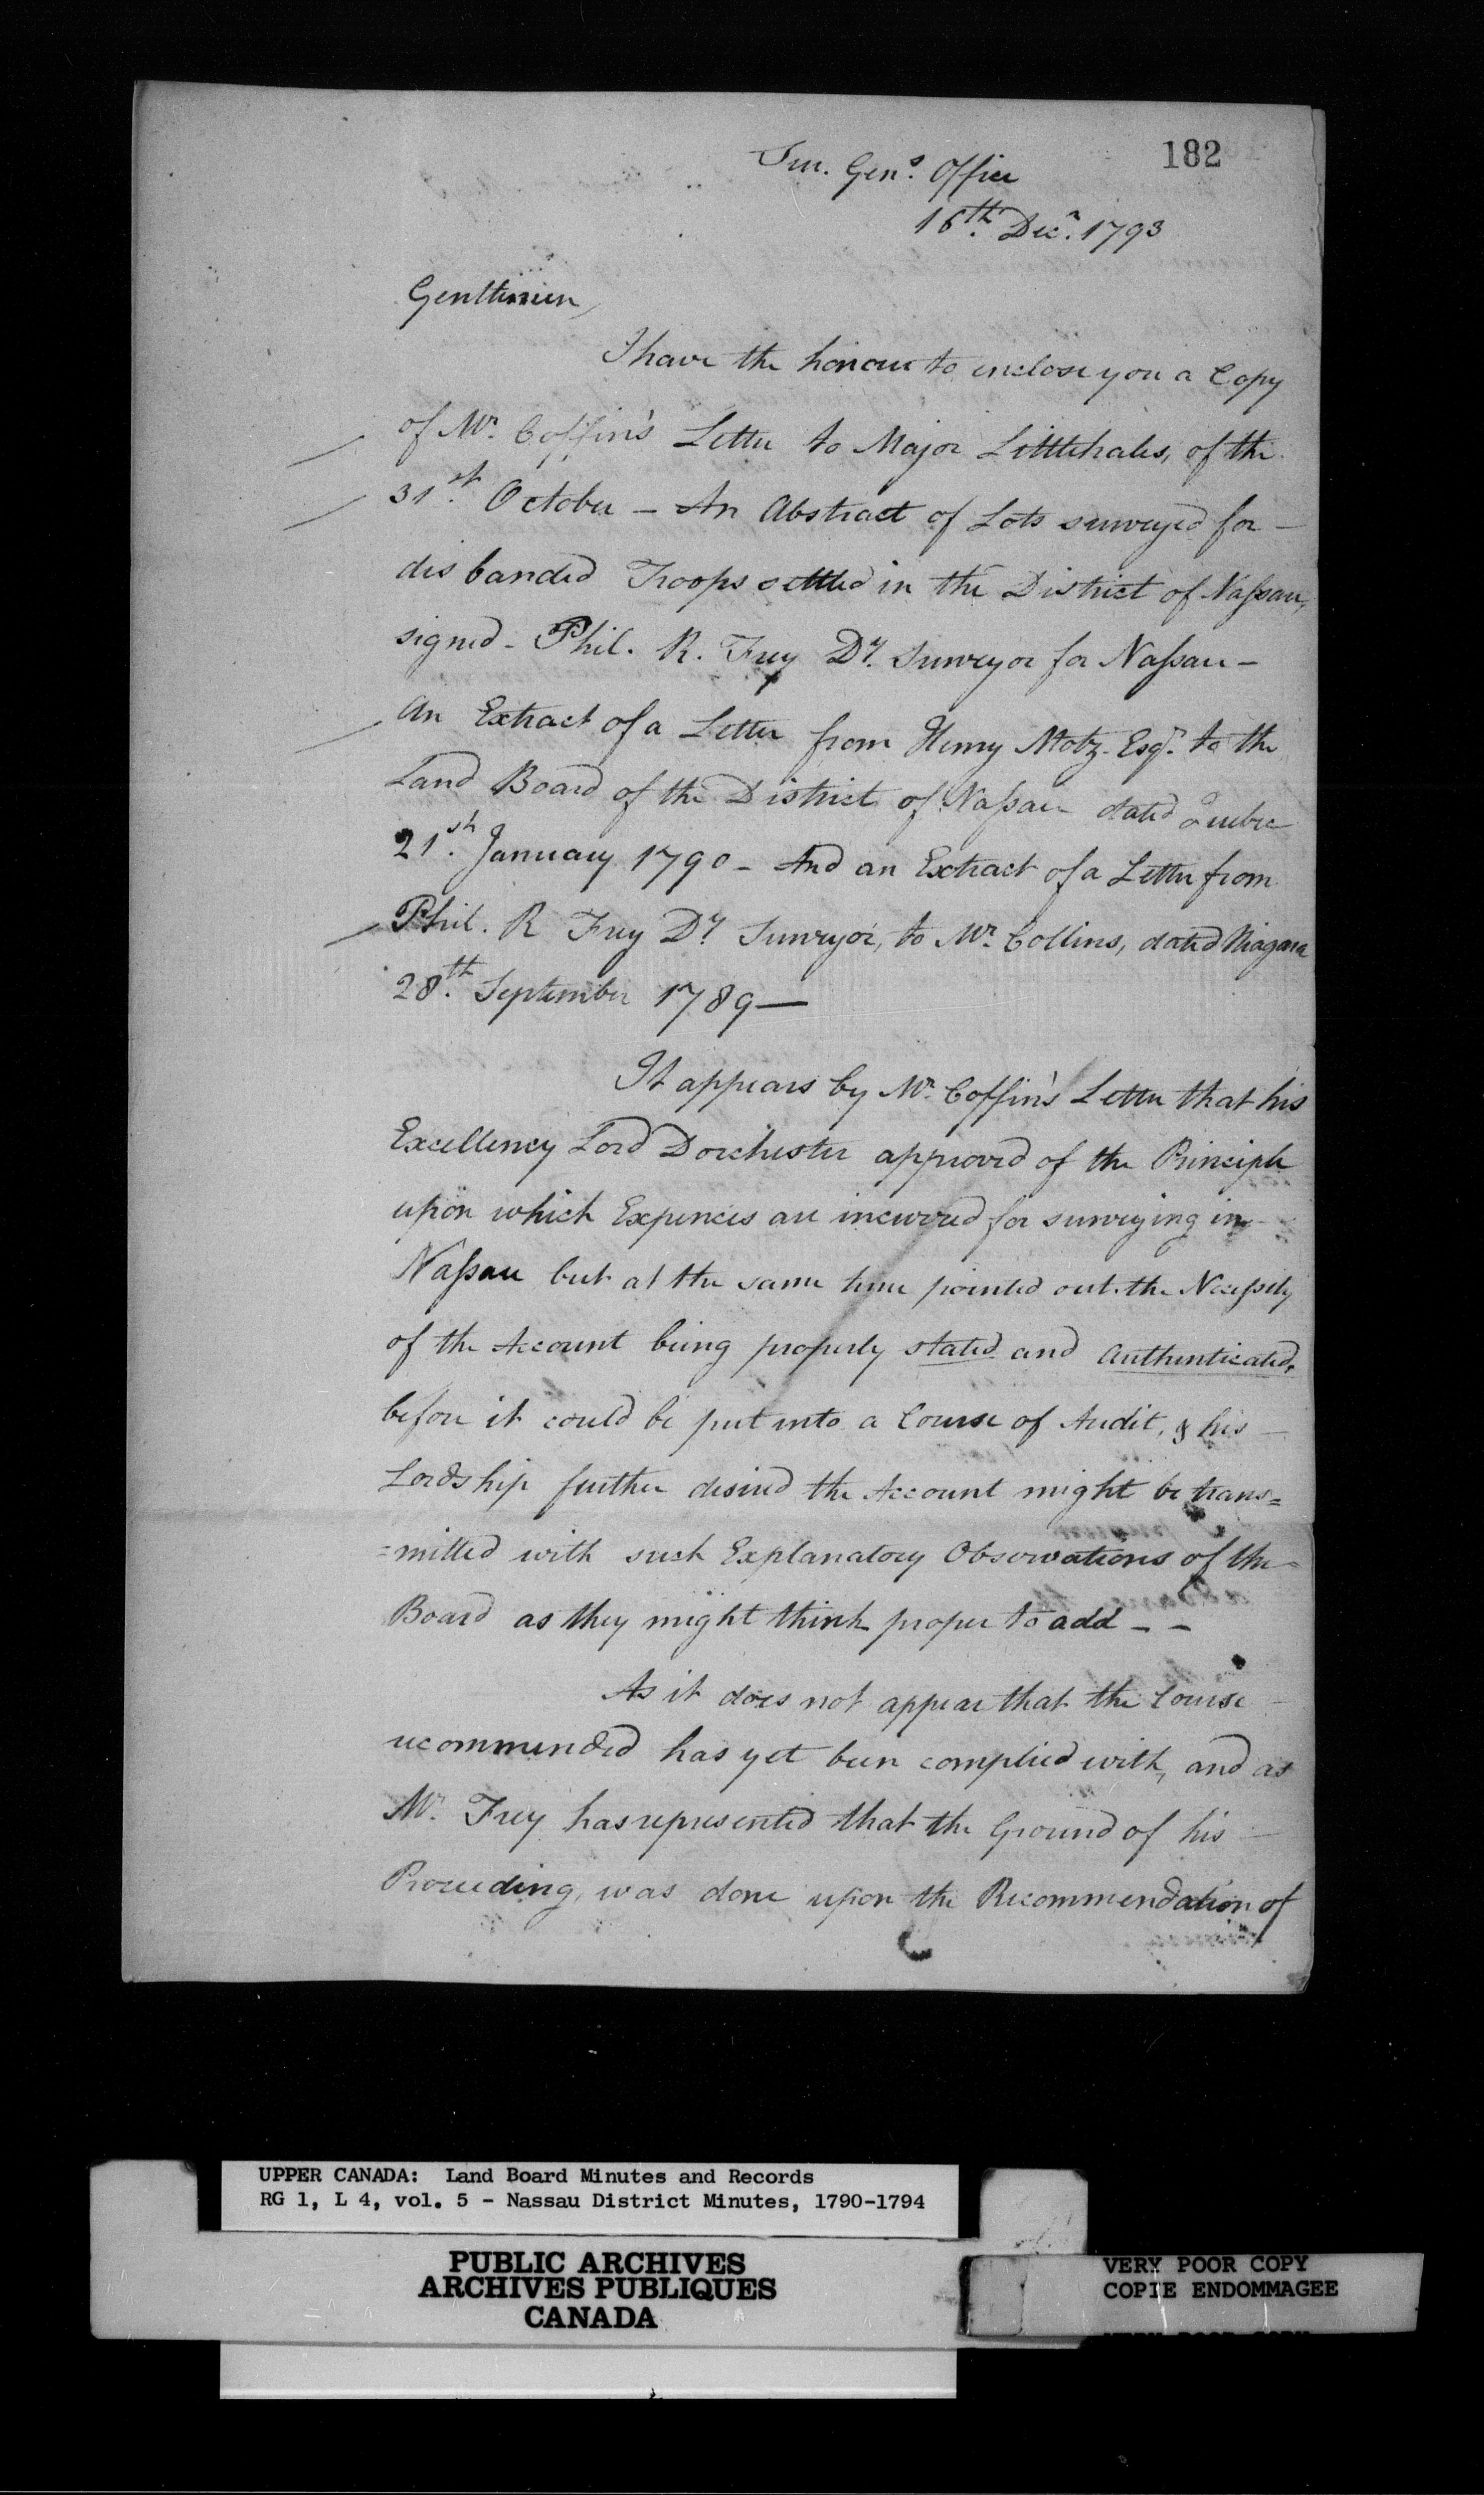 182
Sur. Gen.s Office
16th Decr. 1793
Gentlemen,
I have the honour to enclose you a Copy
of Mr. Coffin's Letter to Major Littlehales, of the
31st. October - An Abstract of Lots surveyed for -
disbanded Troops settled in the District of Naſsau,
signed - Phil. R. Frey Dy. Surveyor for Naſsau -
An Extract of a Letter from Henry Motz Esqr. to the
Land Board of the District of Naſsau dated Quebec
21st. January 1790 - And an Extract of a Letter from
Phil. R Frey Dy Surveyor, to Mr. Collins, dated Niagara
28th. September 1789 —
It appears by Mr. Coffin's Letter that his
Excellency Lord Dorchester approved of the Principle
upon which Expences are incurred for surveying in
Naſsau but at the same time pointed out the Neceſsity
of the Account being properly stated and Authenticated,
before it could be put into a Course of Audit, & his -
Lordship further desired the Account might be trans=
=mitted with such Explanatory Observations of the
Board as they might think proper to add - -
As it does not appear that the Course
recommended has yet been complied with, and as
Mr. Frey has represented that the Ground of his
Proceeding, was done upon the Recommendation of
UPPER CANADA: Land Board Minutes and Records
RG 1, L 4, vol. 5 - Nassau District Minutes, 1790-1794
PUBLIC ARCHIVES
ARCHIVES PUBLIQUES
CANADA
VERY POOR COPY
COPIE ENDOMMAGEE
VERY POOR COPY